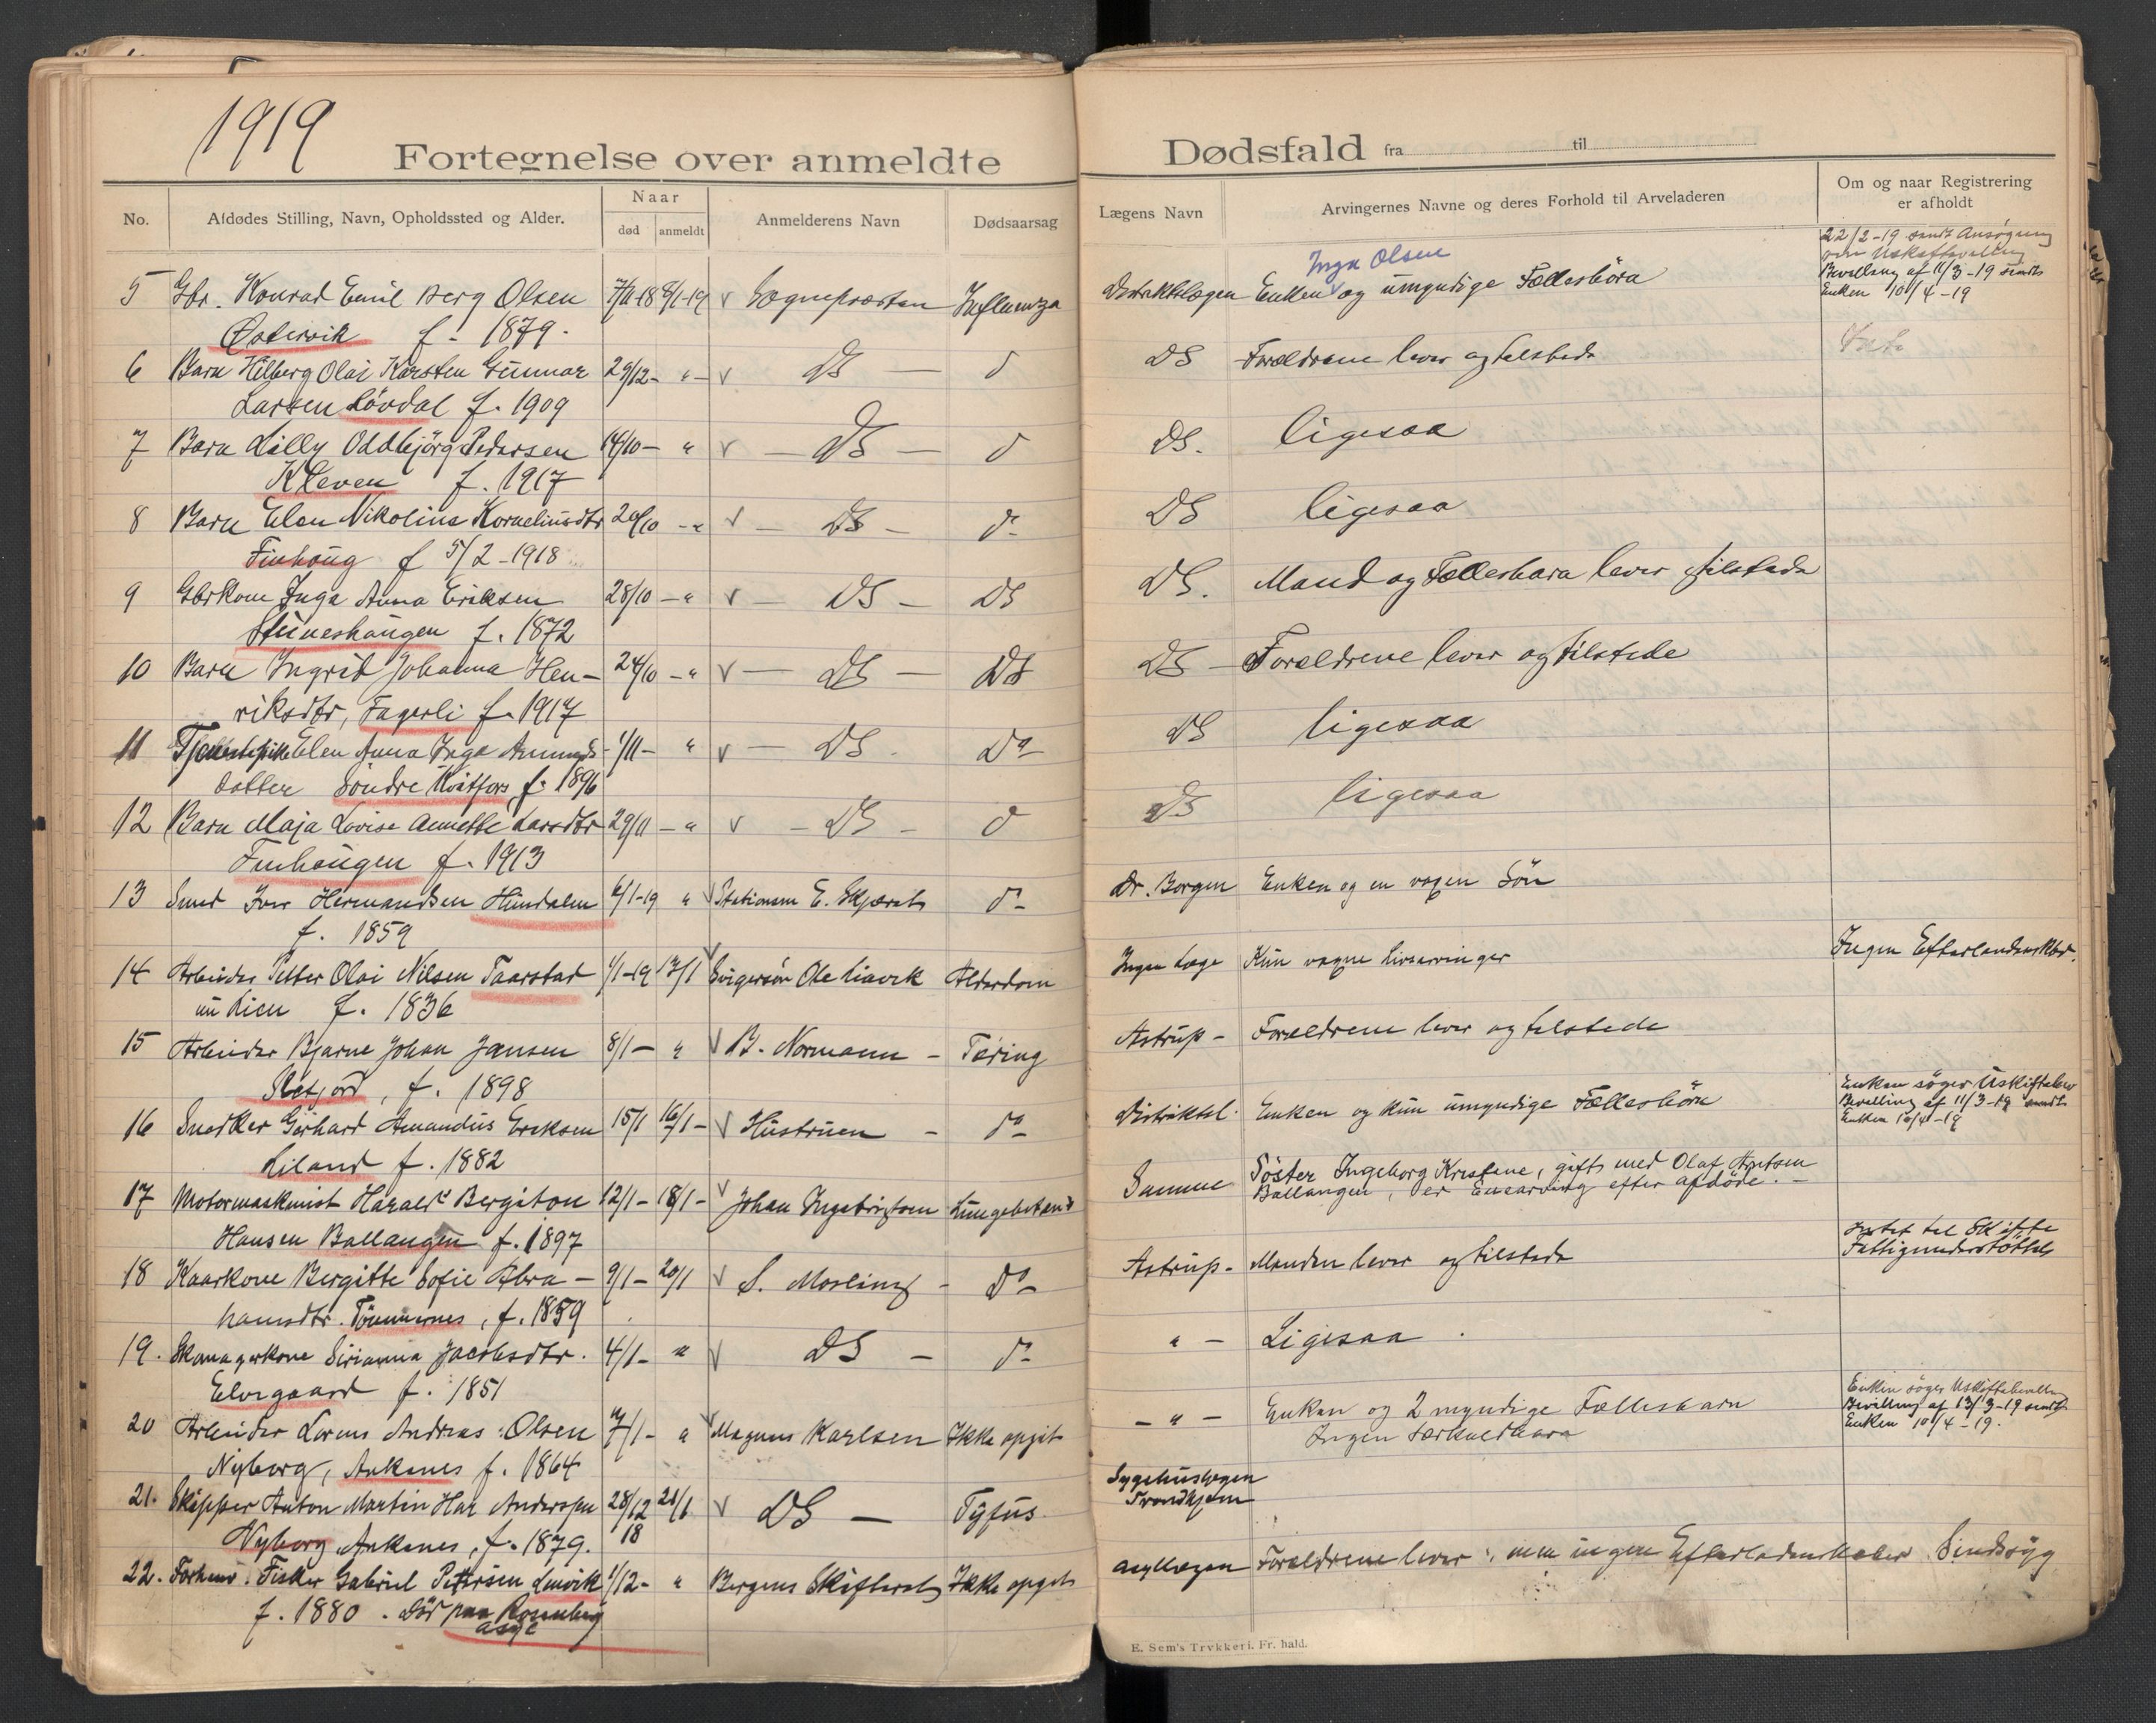 1919
Fortegnelse over anmeldte
No. Afdødes Stilling, Navn, Opholdssted og Alder. Naar død anmeldt Anmelderens Navn Dødsaarsag
5 Gbr. Konrad Emil Berg Olsen 7/11-18 8/1-19 v Sognepræsten Influenza
Østervik f. 1879.
6 Barn Hilberg Olai Karsten Gunnar 29/12- " - v DS — d
Larsen Lövdal f. 1909
7 Barn Lilly Oddbjörg Pedersen 14/10- " v — DS — d
Kleven f. 1917
8 Barn Elen Nikolina Korneliusdtr 20/10 - " v — DS — do
Finhoug f 5/2-1918
9 Gbrkone Inga Anna Eriksen 28/10 - " v — DS — DS
Stuneshaugen f. 1872
10 Barn Ingrid Johanna Hen- 24/10 - " v — DS — DS
riksdtr, Fagerli f. 1917
11 Tjenestepike Elen Anna Inga Amunds- 1/11- " v — DS Do
datter Söndre Kvitfors f. 1896
12 Barn Maja Lovise Annette Larsdtr 29/11 - " v - DS - d
Finhaugen f. 1913
13 Smed Iver Hermandsen Hundalen 6/1-19 " v Stationsm E. Skjærets do
f. 1859
14 Arbeider Petter Olai Nilsen Taarstad 1/1-19 13/1 v Svigersön Ole Liavik Alderdom
un Lien f. 1836
15 Arbeider Bjarne Johan Jansen 8/1- " v B. Normann - Tæring
Skjord, f. 1898
16 Snedker Gerhard Amandus Eriksen 15/1 16/1- v Hustruen - do
Liland f. 1882
17 Motormaskinist Harald Bergiton 12/1- 18/1- v Johan Ingebrigtsen Lungebetend
Hansen Ballangen f. 1897
18 Kaarkone Bergitte Sofie Abra- 9/1- 20/1 v S. Mosling - do
hamsdtr. Tömmernes, f. 1859
19. Skomagerkone Sirianna Jacobsdtr. 4/1- " v DS — do
Elvegaard f. 1851
20 Arbeider Lorens Andreas Olsen 7/1- " v Magnus Karlsen Ikke opgit
Nyborg, Ankenes f. 1864
21. Skipper Anton Martin Har Andersen 28/12 18 21/1 v DS — Tyfus
Nyborg Ankenes, f. 1879.
22. Forhenv. Fisker Gabriel Petersen Lenvik 1/12- " Bergens Skifteret Ikke opgit
f. 1880. Död paa Rosenberg
asyl
Dødsfald fra til
Lægens Navn Arvingernes Navne og deres Forhold til Arveladeren Om og naar Registrering er afholdt
Inga Olsen
Distriktslægen Enken og umyndige Fællesbörn
22/2-19 sendt Ansøgning
om Uskiftebevilling
Bevilling af 11/3-19 sendt
Enken 10/4-19
DS Forældrene lever og tilstede
DS. ligesaa
DS ligesaa
DS. Mand og Fællesbarn lever tilstede
DS - Forældrene lever og tilstede
DS ligesaa
DS ligesaa
Dr. Borgen Enken og en voxen Sön
Ingen Læge Kun voxne Livsarvinger Ingen Efterladenskber.
Astrup - Forældrene lever og tilstede
Distriktsl. Enken og kun umyndige Fællesbörn
Enken söger Uskiftebev
Bevilling af 11/3-19 sendt
Enken 10/4-19
Samme Söster Ingeborg Kristine, gift med Olaf Arntsen
Ballangen, er Enearving efter afdöde. -
Astrup - Manden lever og tilstede
Intet til Skifte
Fattigunderstöttet
" - Ligesaa
- " - Enken og 2 myndige Fællesbarn
Ingen Særkuldbarn
Enken söger Uskiftebevilling
Bevilling af 13/3-19 sendt
Enken 10/4-19.
Sygehuslægen
Trondhjem
Asyllægen Forældrene lever, men ingen Efterladenskaber. Sindssyg
E. Sem's Trykkeri, Fr. hald.